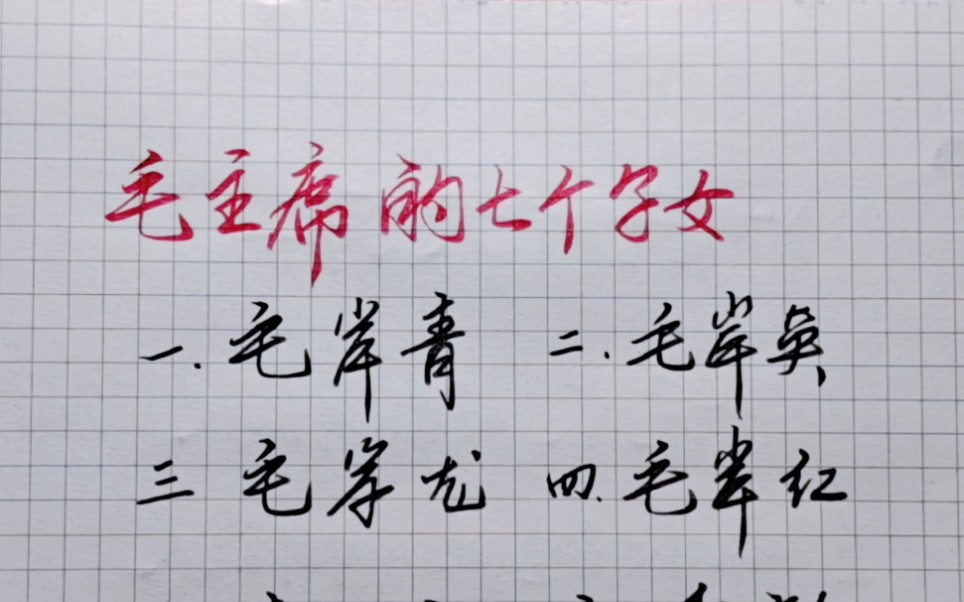 毛主席的七个子女
一.毛岸青 二.毛岸英
三 毛岸龙 四.毛岸红